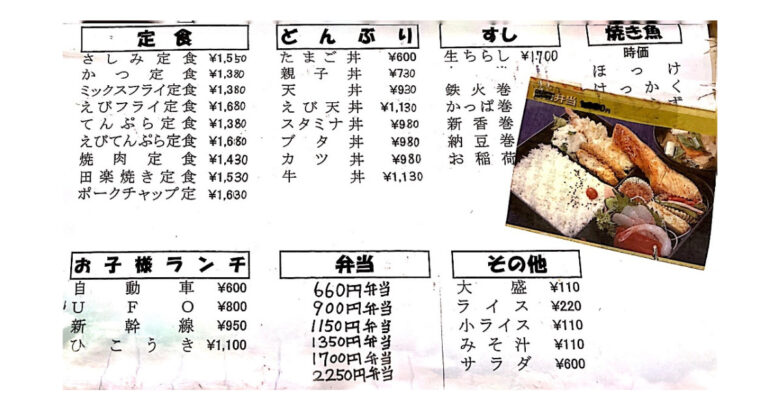 定食
さしみ定食 ¥1,550
かつ定食 ¥1,380
ミックスフライ定食 ¥1,380
えびフライ定食 ¥1,680
てんぷら定食 ¥1,380
えびてんぷら定食 ¥1,680
焼肉定食 ¥1,430
田楽焼き定食 ¥1,530
ポークチャップ定 ¥1,630
どんぶり
たまご丼 ¥600
親子丼 ¥730
天丼 ¥930
えび天丼 ¥1,130
スタミナ丼 ¥980
ブタ丼 ¥980
カツ丼 ¥980
牛丼 ¥1,130
すし
生ちらし ¥1,700
鉄火巻
かっぱ巻
新香巻
納豆巻
お稲荷
焼き魚
時価
ほっけ
けっかく
ず
弁当
お子様ランチ
自動車 ¥600
UFO ¥800
新幹線 ¥950
ひこうき ¥1,100
弁当
660円弁当
900円弁当
1150円弁当
1350円弁当
1700円弁当
2250円弁当
その他
大盛 ¥110
ライス ¥220
小ライス ¥110
みそ汁 ¥110
サラダ ¥600